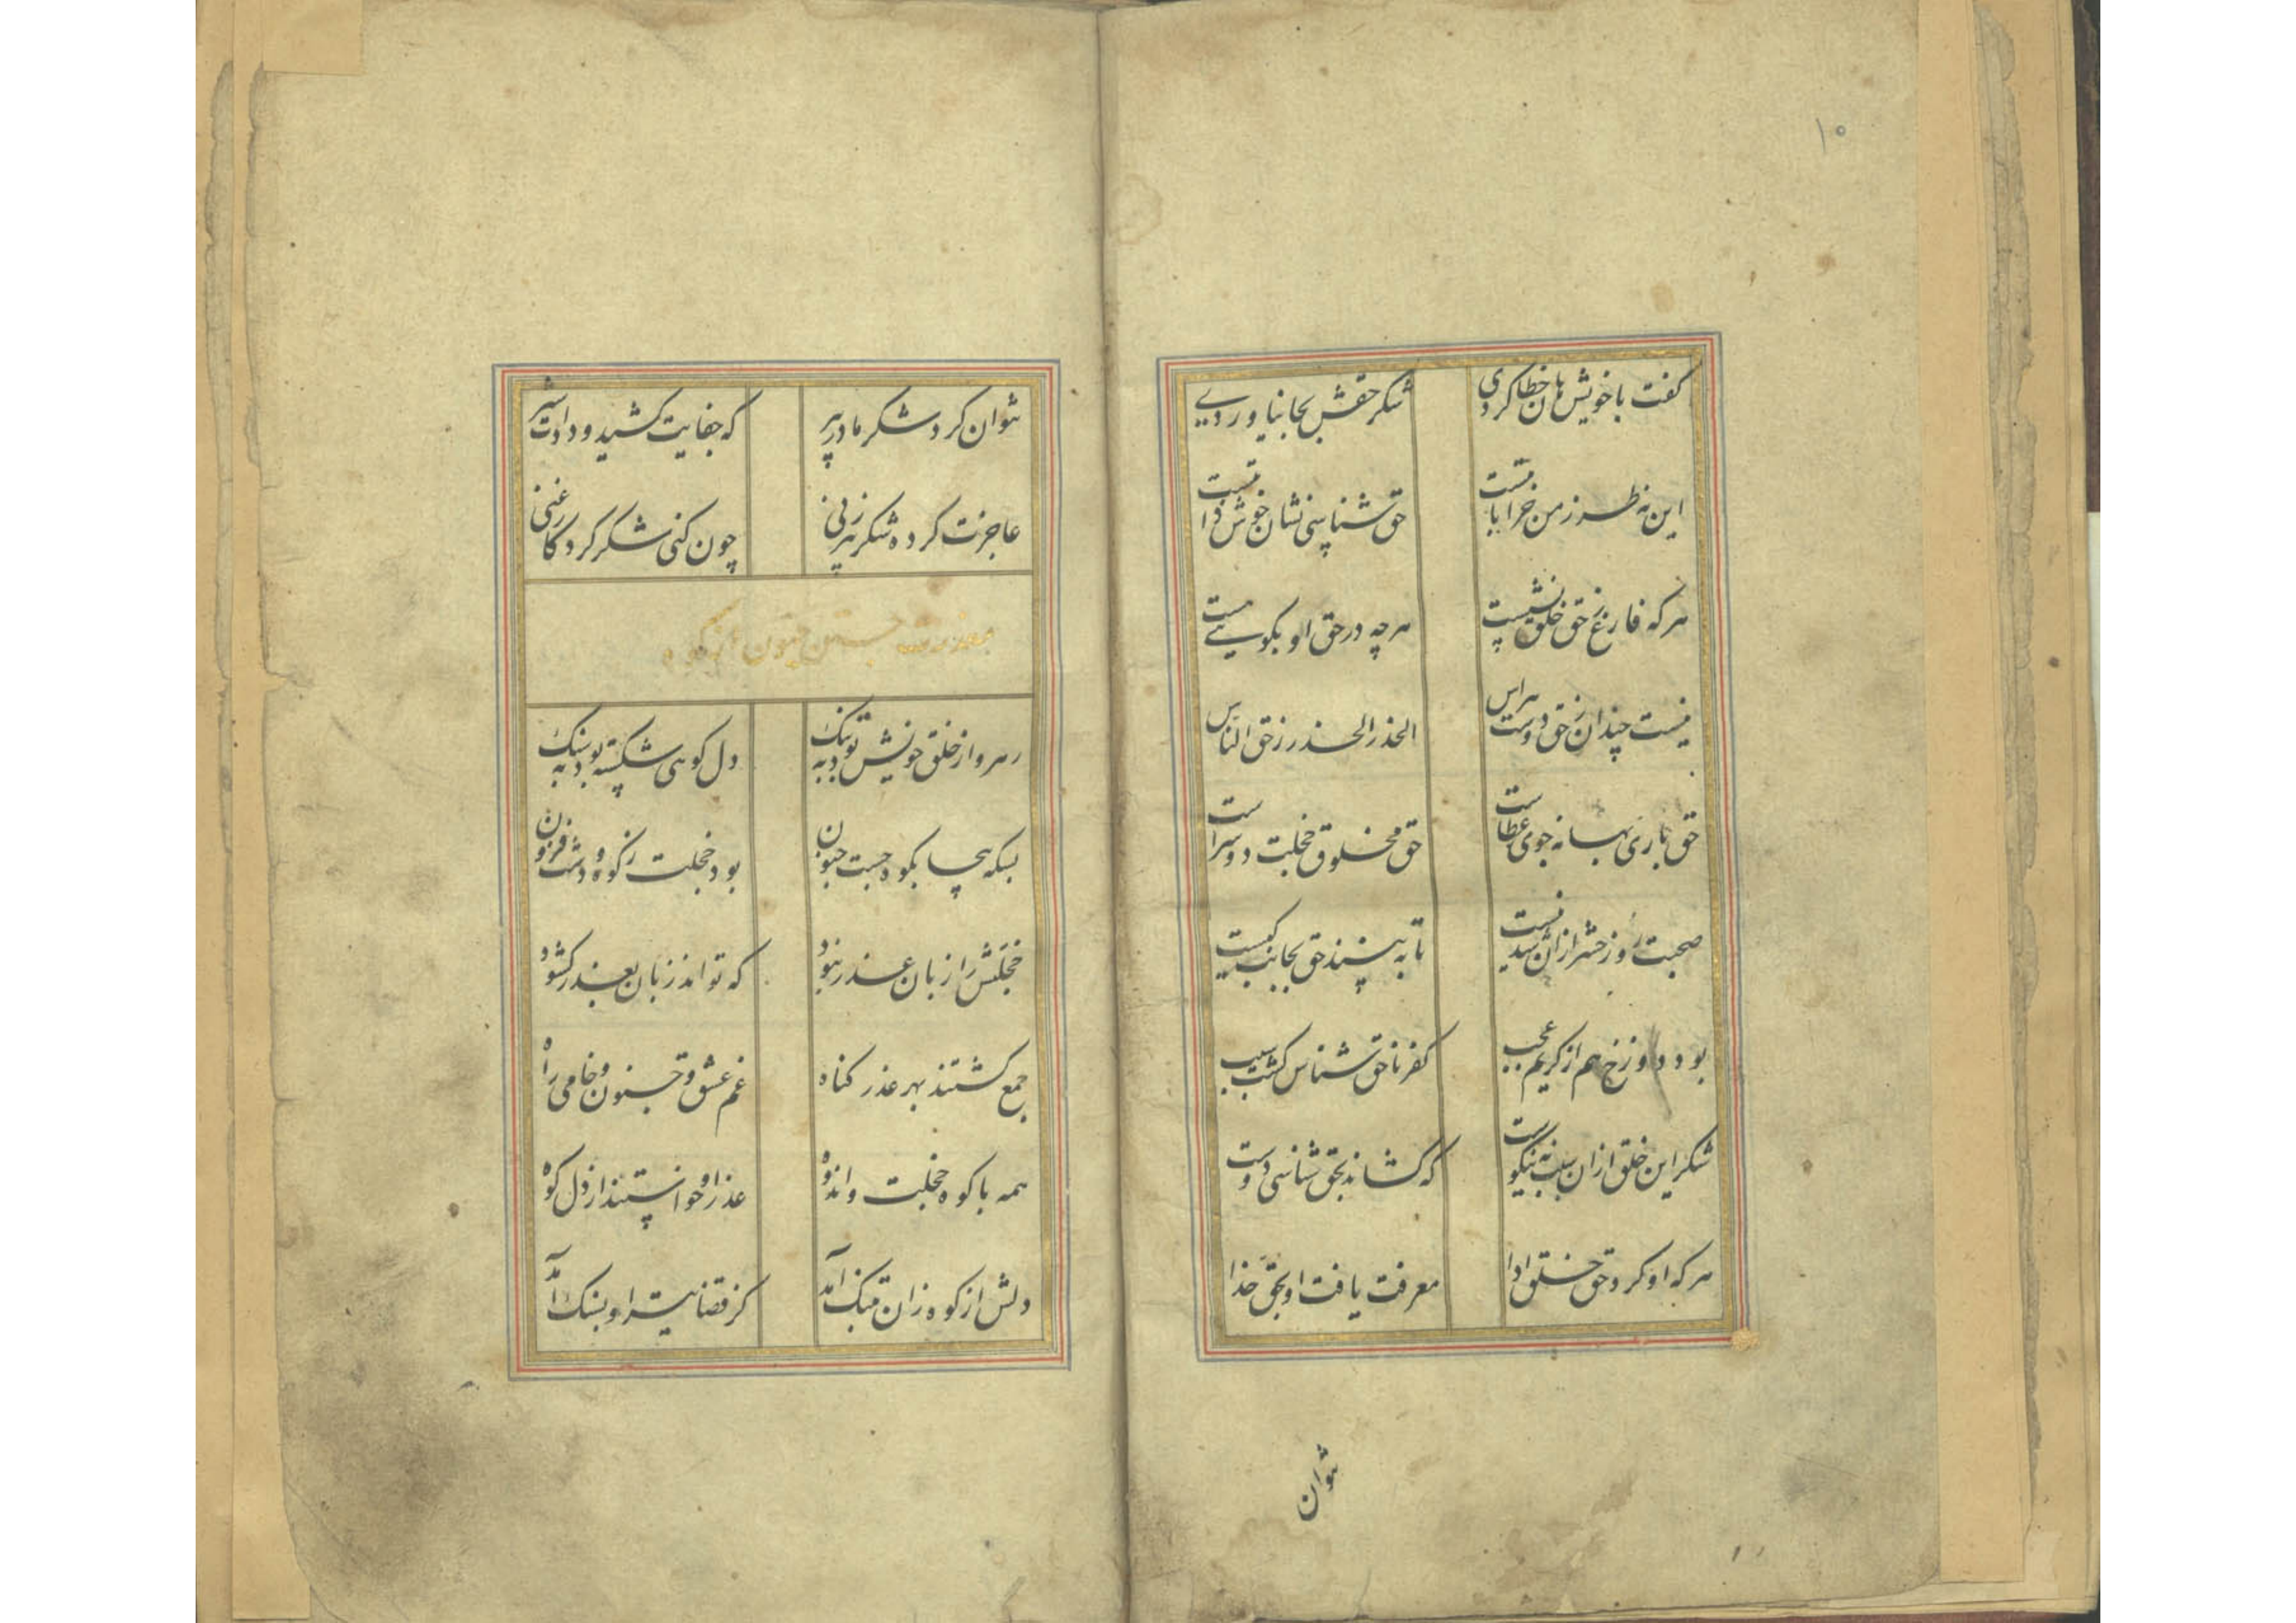 ۱۰
گفت با خویش هان خطا کردی
شکر حقش بجا نیاوردی
این نه طرز من خراباتیست
حق شناسی نشان خوش ذاتیست
هر که فارغ ز حق خلق نشست
هرچه در حق او بگویی هست
نیست چندان ز حق دوست هراس
الحذر الحذر ز حق الناس
حق باری بهانه جوی عطاست
حق مخلوق خجلت دو سراست
صحبت روز حشر ازان شدنیست
تا به بینند حق بجانب کیست
بود دوزخ هم از کریم عجب
کفر ناحق شناس گشت سبب
شکر این خلق ازان سبب نیکوست
که کشاند بحق شناسی دوست
هر که او کرد حق خلق ادا
معرفت یافت او بحق خدا
نتوان
نتوان کرد شکر مادر پیر
که جفایت کشید و دادت شیر
عاجزت کرده شکر پیر زنی
چون کنی شکر کردگار غنی
معذرت جستن جنون از کوه
رهرو از خلق خویش بود به تنگ
دل کوهی شکسته بود به سنگ
بسکه بیجا بکوه جست جنون
بود خجلت ز کوه و دشت فزون
خجلتش را زبان عذر نبود
که تواند زبان بعذر گشود
جمع گشتند بهر عذر گناه
غم عشق و جنون و خامی راه
همه با کوه خجلت و اندوه
عذر او خواستند از دل کوه
دلش از کوه زان به تنگ آمد
کز قضا تیر او بسنگ آمد